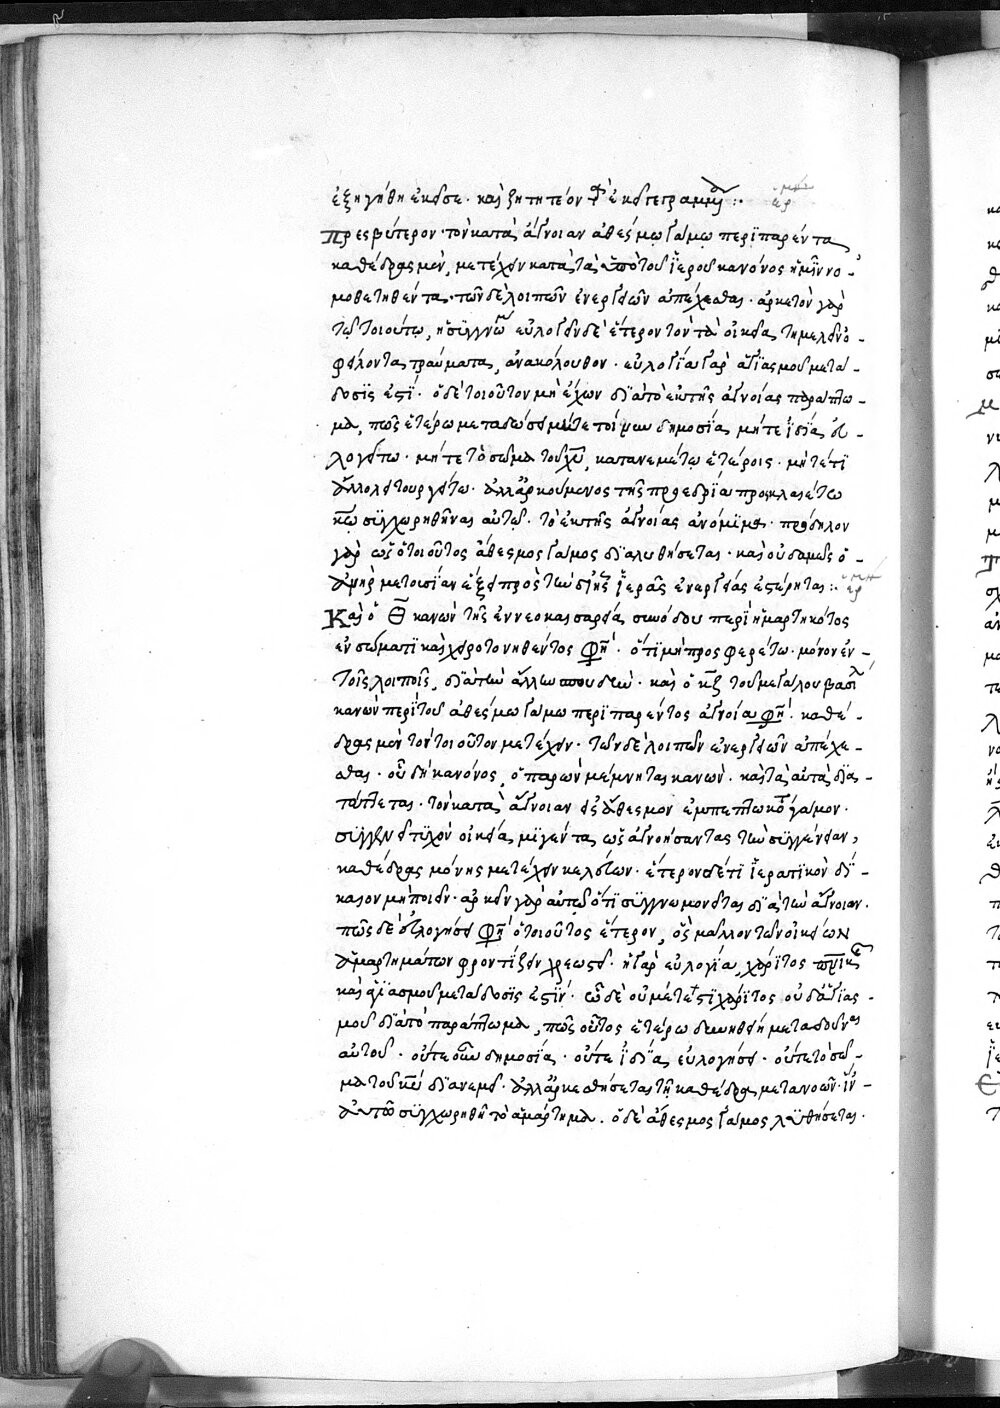 ἐξηγήθη ἐκεῖσε· καὶ ζητητέον τὰ ἐκεῖσε γεγραμμένα :·
Πρεσβύτερον τὸν κατὰ ἄγνοιαν ἀθέσμω γάμω περιπαρέντα
καθέδρας μὲν, μετέχειν κατὰ τὰ ὑπὸ τοῦ ἱεροῦ κανόνος ἡμῖν νο-
μοθετηθέντα· τῶν δὲ λοιπῶν ἐνεργειῶν ἀπέχεσθαι· ἀρκετὸν γὰρ
τῷ τοιούτω, ἡ συγγνώμη εὐλογεῖν δὲ ἕτερον τὸν τὰ οἰκεῖα τημελεῖν ὀ-
φείλοντα τραύματα, ἀνακόλουθον· εὐλογία γὰρ ἁγιασμοῦ μετά-
δοσις ἐστί· ὁ δὲ τοιοῦτον μὴ ἔχων διὰ τὸ ἐκ τῆς ἀγνοίας παράπτω-
μα, πῶς ἑτέρω μεταδώσει μήτε τοίνυν δημοσία μήτε ἰδία εὐ-
λογείτω· μήτε τὸ σῶμα τοῦ χυ, κατανεμέτω ἑτέροις· μήτε τι
ἄλλο λειτουργείτω· ἀλλ' ἀρκούμενος τῆς προεδρία προσκλαιέτω
κω συγχωρηθῆναι αὐτῷ· τὸ ἐκ τῆς ἀγνοίας ἀνόμημα· πρόδηλον
γὰρ ὡς ὁ τοιοῦτος ἄθεσμος γάμος διαλυθήσεται· καὶ οὐδαμῶς ὁ
ἀνὴρ μετουσίαν ἕξει πρὸς τὴν δι' ἧς ἱερᾶς ἐνεργείας ἐστέρηται :·
Καὶ ὁ θ κανὼν τῆς ἐν νεοκαισαρεία συνόδου περὶ ἡμαρτηκότος
ἐν σώματι καὶ χειροτονηθέντος φησί· ὅτι μὴ προσφερέτω· μένων ἐν
τοῖς λοιποῖς, διὰ τὴν ἄλλην σπουδήν· καὶ ὁ κζ τοῦ μεγάλου βασιλείου
κανὼν περὶ τοῦ ἀθέσμω γάμω περιπαρέντος ἀγνοία φησί· καθέ-
δρας μὲν τὸν τοιοῦτον μετέχειν· τῶν δὲ λοιπῶν ἐνεργειῶν ἀπέχε-
σθαι· οὗ δὴ κανόνος, ὁ παρὼν μέμνηται κανών· καὶ τὰ αὐτὰ δια-
τάττεται· τὸν κατὰ ἄγνοιαν εἰς ἄθεσμον ἐμπεπτωκότα γάμον·
συγγενεῖ τυχὸν οἰκεία μιγέντα ὡς ἀγνοήσαντα τὴν συγγένειαν,
καθέδρας μόνης μετέχειν κελεύων· ἕτερον δέ τι ἱερατικὸν δί-
καιον μὴ ποιεῖν· ἀρκεῖν γὰρ αὐτῷ ὅτι συγγνωμονεῖται διὰ τὴν ἄγνοιαν·
πῶς δὲ εὐλογήσει φησὶ ὁ τοιοῦτος ἕτερον, ὃς μᾶλλον τῶν οἰκείων
ἁμαρτημάτων φροντίζειν χρεωστεῖ· ἡ γὰρ εὐλογία, χάριτος πνικῆς
καὶ ἁγιασμοῦ μετάδοσις ἐστίν· ὧ δὲ οὐ μέτεστι χάριτος οὐδ' ἁγιας-
μοῦ διὰ τὸ παράπτωμα, πῶς οὗτος ἑτέρω δυνηθείη μεταδοῦναι
αὐτοῦ· οὔτε οὖν δημοσία· οὔτε ἰδία εὐλογήσει· οὔτε τὸ σῶ-
μα τοῦ κυ διανεμεῖ· ἀλλ' ἀρκεσθήσεται τῆ καθέδρα μετανοῶν ἵν'
αὐτῶ συγχωρηθῆ τὸ ἁμάρτημα. ὁ δὲ ἄθεσμος γάμος λυθήσεται·